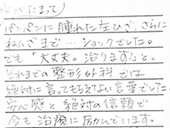 パンパンに腫れた左ひざ、さらに
ねんざまで…ショックでした。
でも「大丈夫。治ります」と、
それまでの整形外科では
絶対に言ってもらえない言葉でした。
安心感と絶対の信頼で
今も治療に励んでいます。